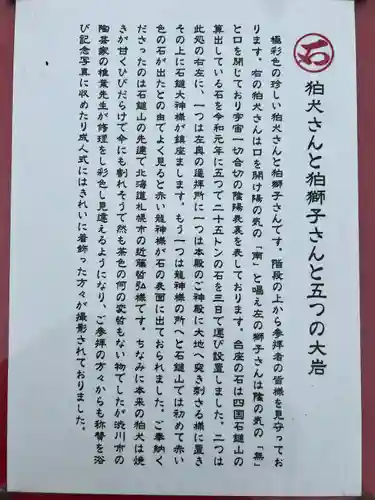 石
狛犬さんと狛獅子さんと五つの大岩
極彩色の珍しい狛犬さんと狛獅子さんです。階段の上から参拝者の皆様を見守ってお
ります。右の狛犬さんは口を開け陽の気の「南」と唱え左の獅子さんは陰の気の「無」
と口を閉じており宇宙一切合切の陰陽表裏を表しております。台座の石は四国石鎚山の
算出している石を令和元年に五つで二十五トンの石を三日で運び設置しました。二つは
此処の右左に、一つは左奥の遥拝所に一つは本殿のご神殿に大地へ突き刺さる様に置き
その上に石鎚大神様が鎮座まします。もう一つは龍神様の所へと石鎚山では初めて赤い
色の石が出たとの由でよく見ると赤い龍神様が石の表面に出ておられました。ご奉納く
ださったのは石鎚山の先達で北海道札幌市の近藤哲弘様です。ちなみに本来の狛犬は焼
きが甘くひびだらけで今にも割れそうで然も茶色の何の変哲もない物でしたが渋川市の
陶芸家の植葉先生が修理をし彩色し見違えるようになり、ご参拝の方々からも称賛を浴
び記念写真に収めたり成人式にはきれいに着飾った方々が撮影されておりました。